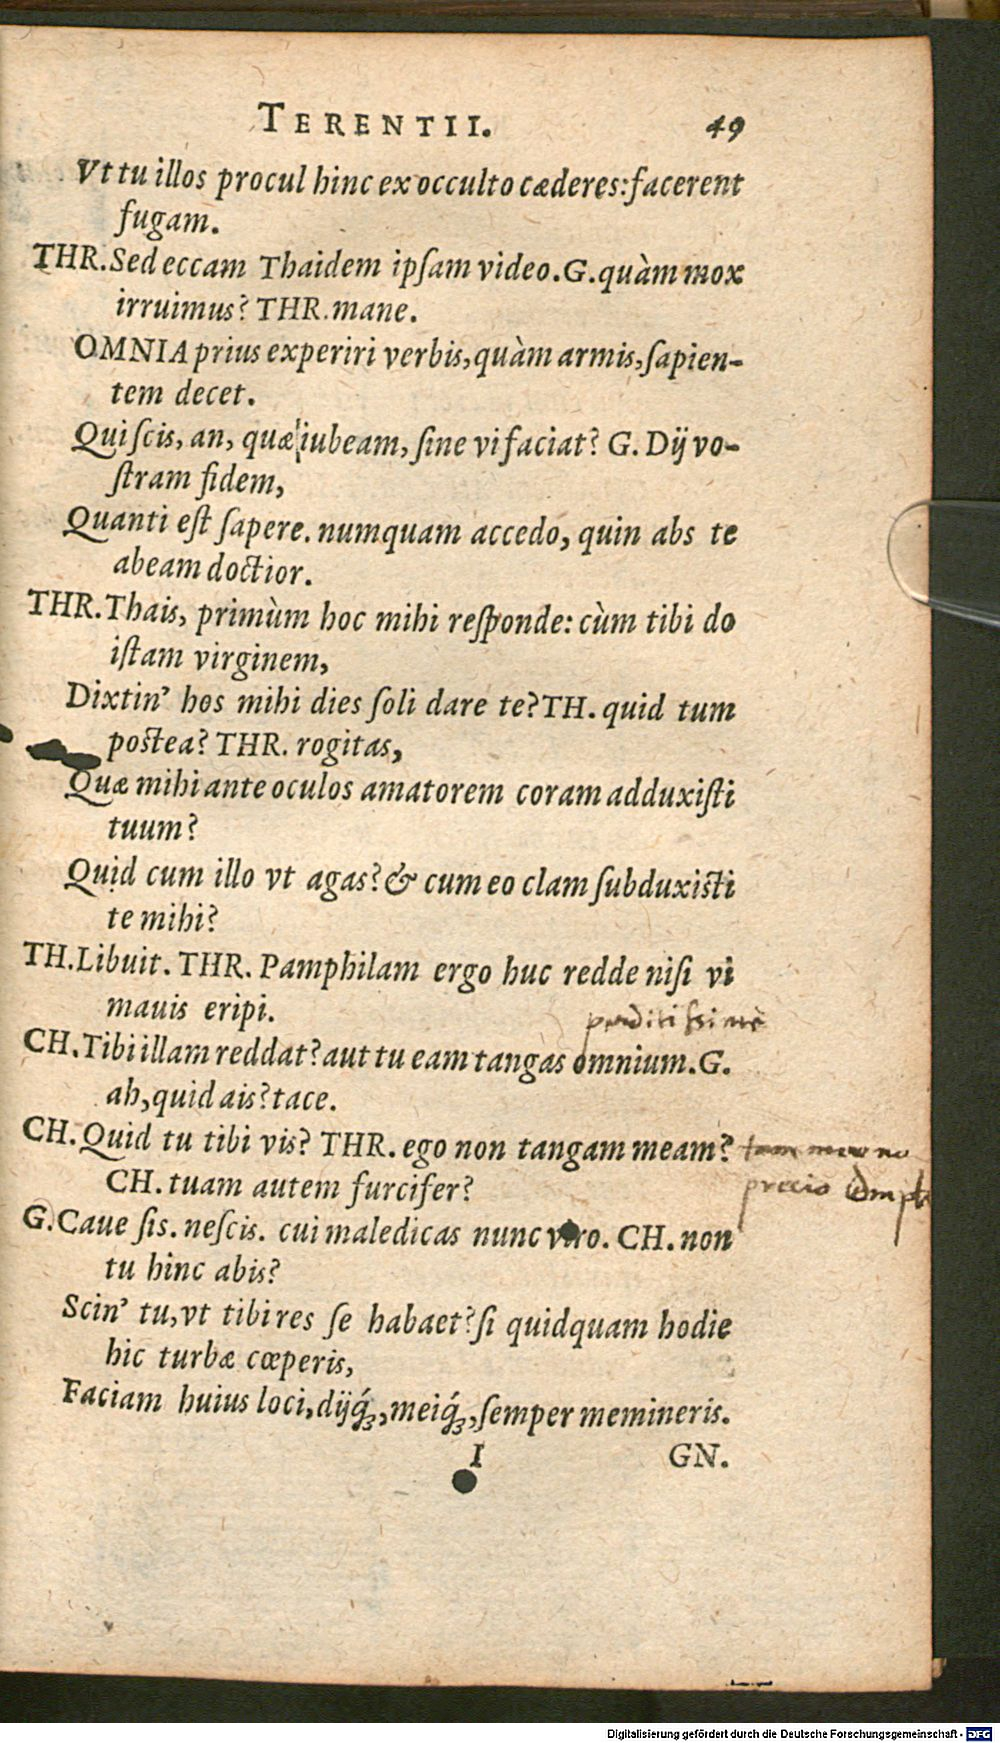 TERENTII. 49
Vt tu illos procul hinc ex occulto cæderes: facerent
fugam.
THR. Sed eccam Thaidem ipſam video. G. quàm mox
irruimus? THR. mane.
OMNIA prius experiri verbis, quàm armis, ſapien-
tem decet.
Qui ſcis, an, quæ iubeam, ſine vi faciat? G. Dij vo-
ſtram fidem,
Quanti eſt ſapere. numquam accedo, quin abs te
abeam doctior.
THR. Thais, primùm hoc mihi reſponde: cùm tibi do
iſtam virginem,
Dixtin' hos mihi dies ſoli dare te? TH. quid tum
postea? THR. rogitas,
Quæ mihi ante oculos amatorem coram adduxiſti
tuum?
Quid cum illo vt agas? & cum eo clam ſubduxisti
te mihi?
TH. Libuit. THR. Pamphilam ergo huc redde niſi vi
mauis eripi.
perditissime
CH. Tibi illam reddat? aut tu eam tangas omnium. G.
ah, quid ais? tace.
CH. Quid tu tibi vis? THR. ego non tangam meam?
CH. tuam autem furcifer?
precio
G. Caue ſis. neſcis. cui maledicas nunc viro. CH. non
tu hinc abis?
Scin' tu, vt tibi res ſe habaet? ſi quidquam hodie
hic turbæ cœperis,
Faciam huius loci, dijq́ꝫ, meiq́ꝫ, ſemper memineris.
I GN.
Digitalisierung gefördert durch die Deutsche Forschungsgemeinschaft - DFG